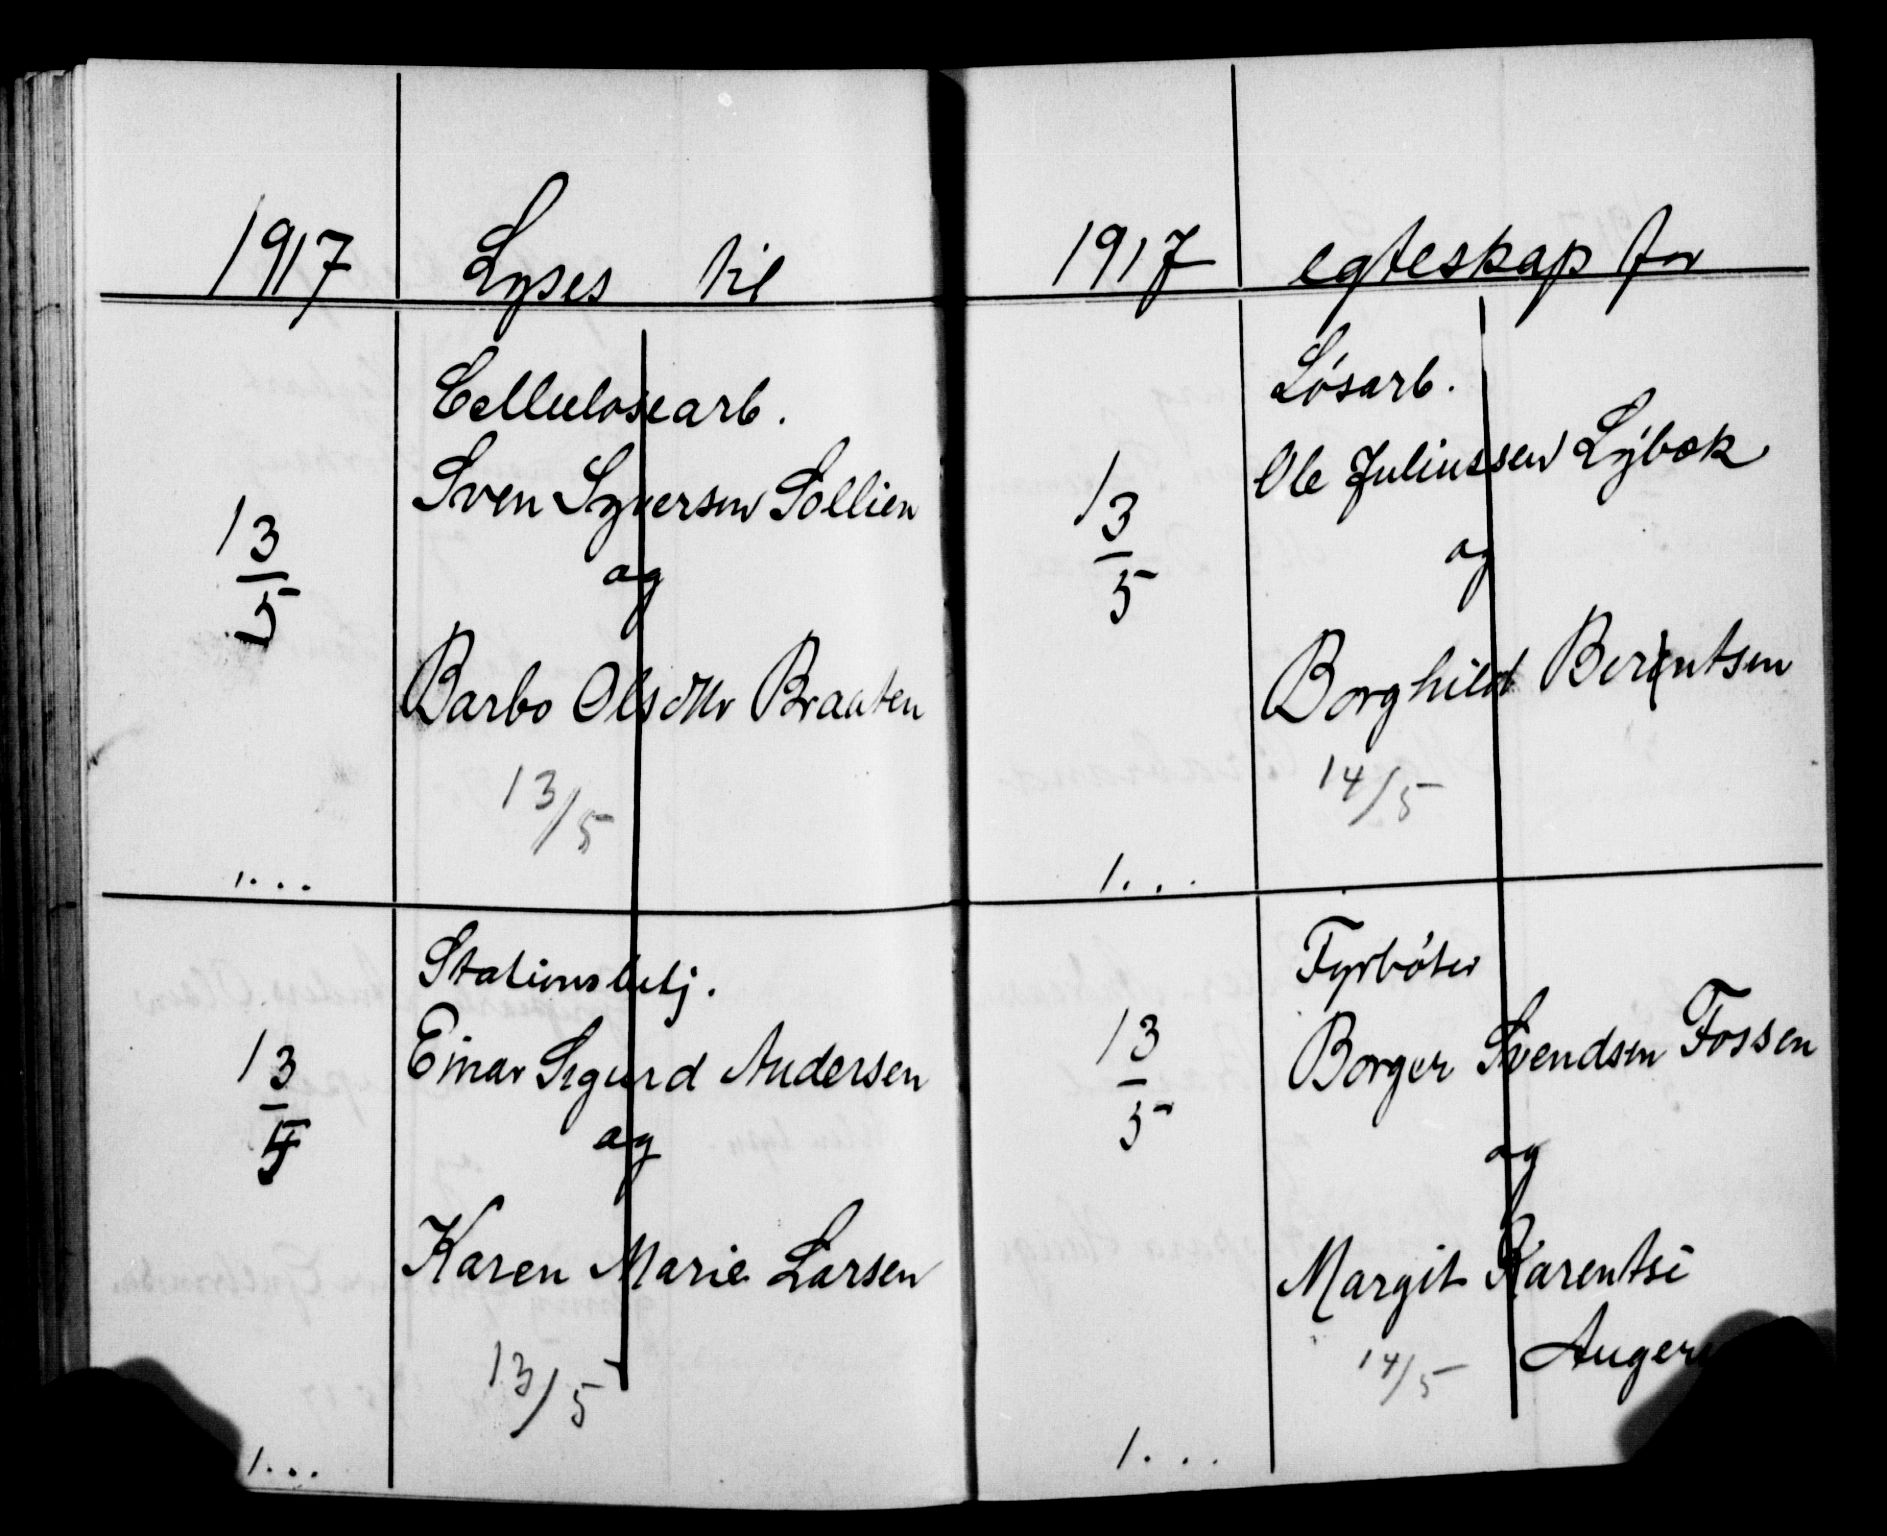 1917 Lyses til
Cellulosearb.
Sven Syversen Sollien
13/5
og
Barbo Olsdtr Braaten
13/5
1...
Stationsbetj.
Einar Sigurd Andersen
13/5
og
Karen Marie Larsen
13/5
1...
1917 egteskap for
Løsarb.
Ole Juliussen Lybæk
13/5
og
Borghild Berentsen
14/5
1...
Fyrbøter
Borger Svendsen Fossen
13/5
og
Margit Karentse
14/5
1...